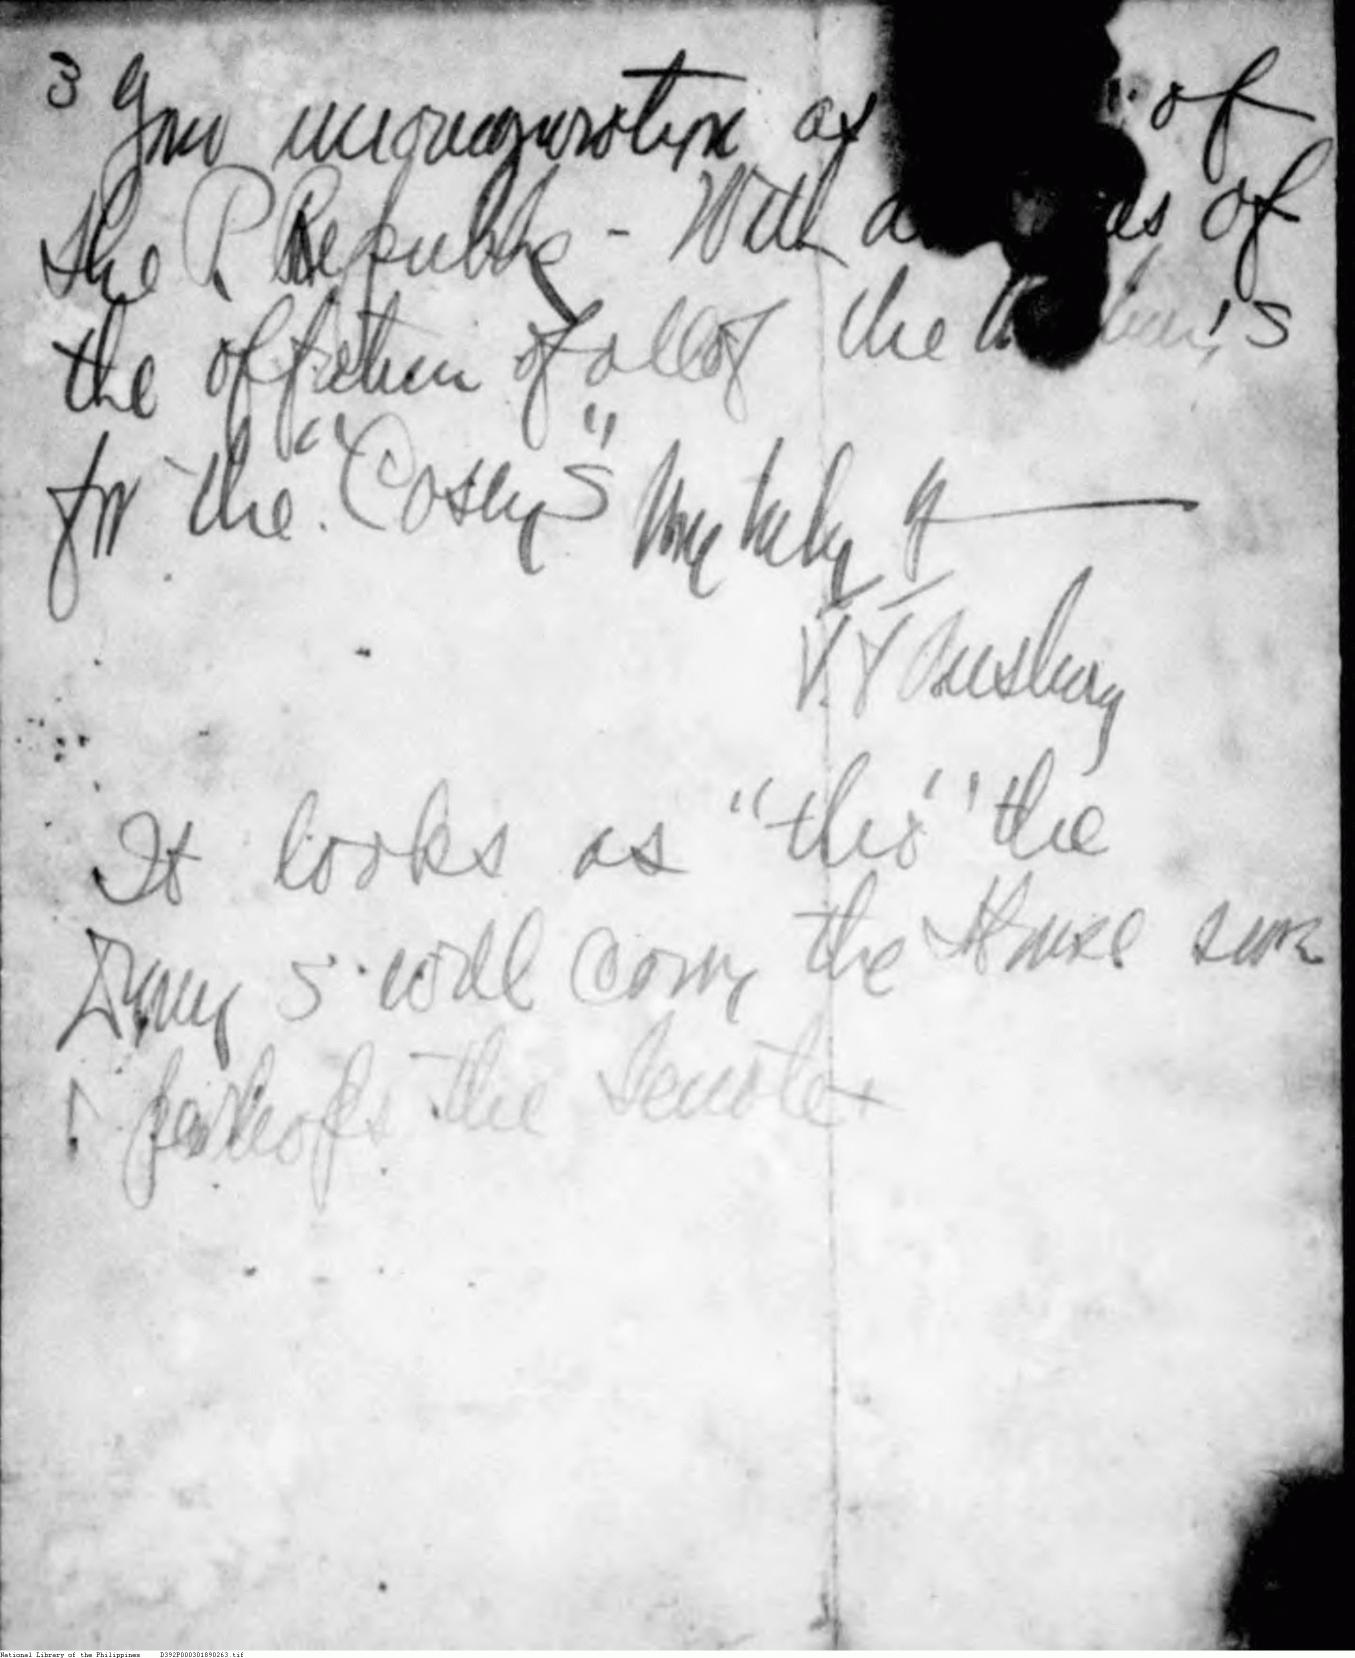 3 Your inauguration as of
the P. Republic - With a of
the affection of all of the 's
for the "Cosey's" Very truly y
V. F.
It looks as "tho" the
Demy s will carry the House sure
& perhaps the Senate.
National Library of the Philippines D392P000301890263.tif